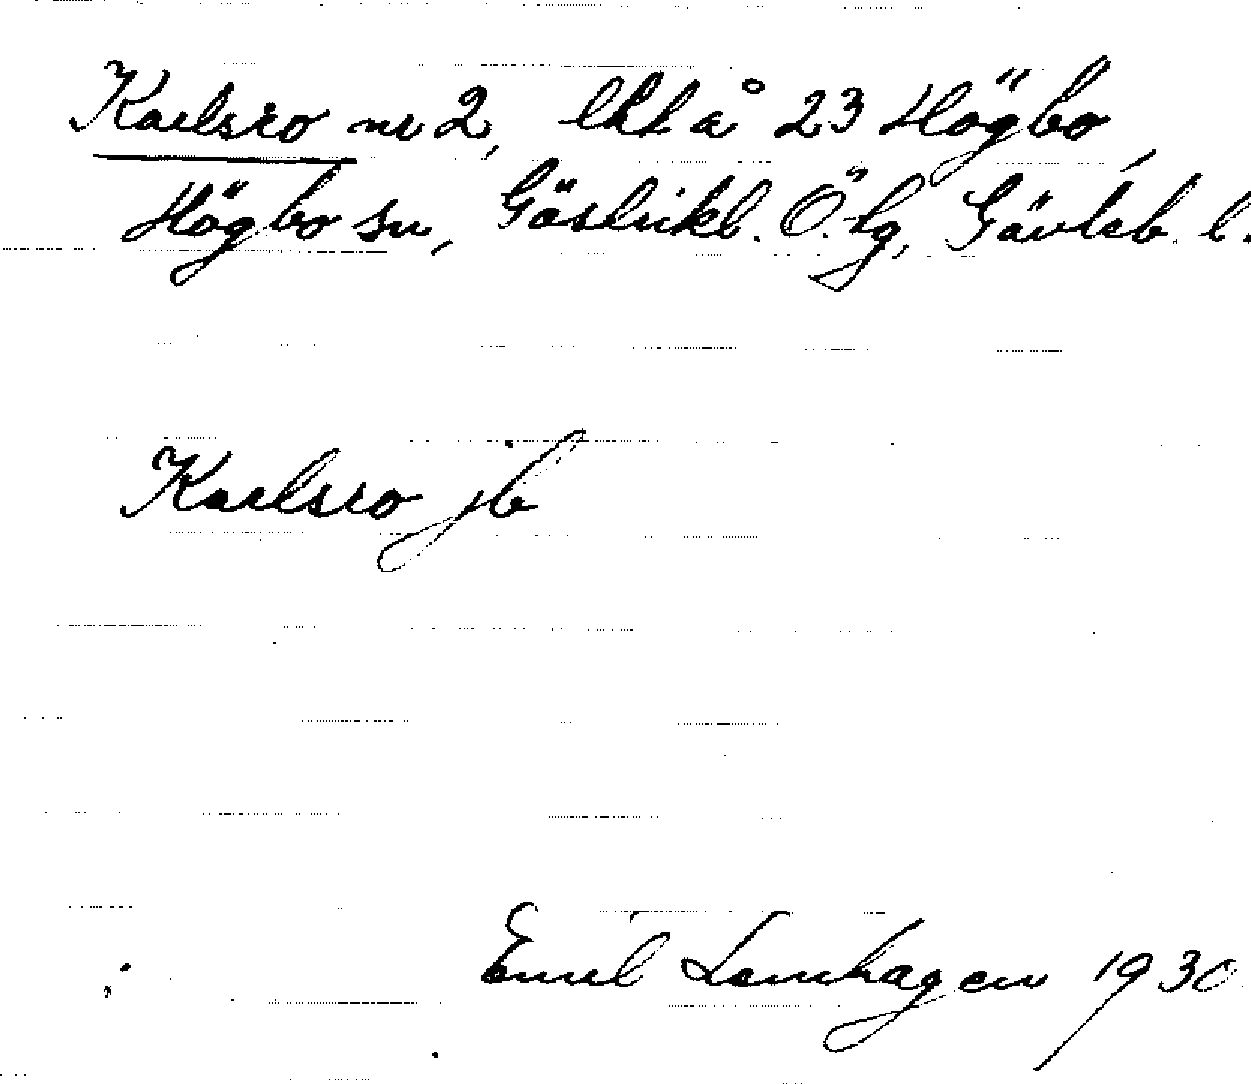 Karlsro nr 2, lht å 23 Högbo,
Högbo sn, Gästrikl. Ö. tg, Gävleb. l.
Karlsro jb
Emil Lennhagen 1930